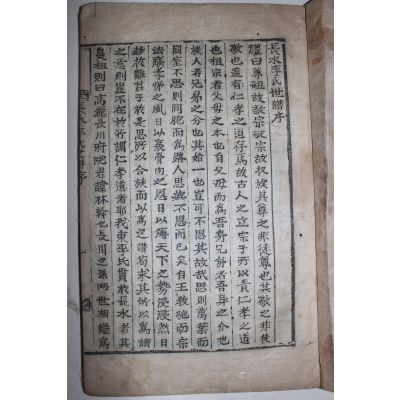 長水李氏世譜序
禮曰尊祖故敬宗敬宗故收族其尊之非徒尊也其敬之非徒
敬也盖有仁孝之道存焉故古人之立宗子所以責仁孝之道
也祖宗者父母之本也自父母而爲吾身兄弟
族人者兄弟之分也其始一也豈可不思其故哉思則萬葉而
同室不思則同胞而爲路人思與不思而已矣自王教弛而宗
法廢孝悌之風日以衰骨肉之恩日以薄天下之勢浸浸然日
移於離於是思所以合族而以爲之譜苟求其所以爲譜
之意則豈不在於所謂仁孝道者耶我東李氏貫於長水者其
鼻祖則曰高麗長川府院君諱林幹也長川之孫兩世相繼爲